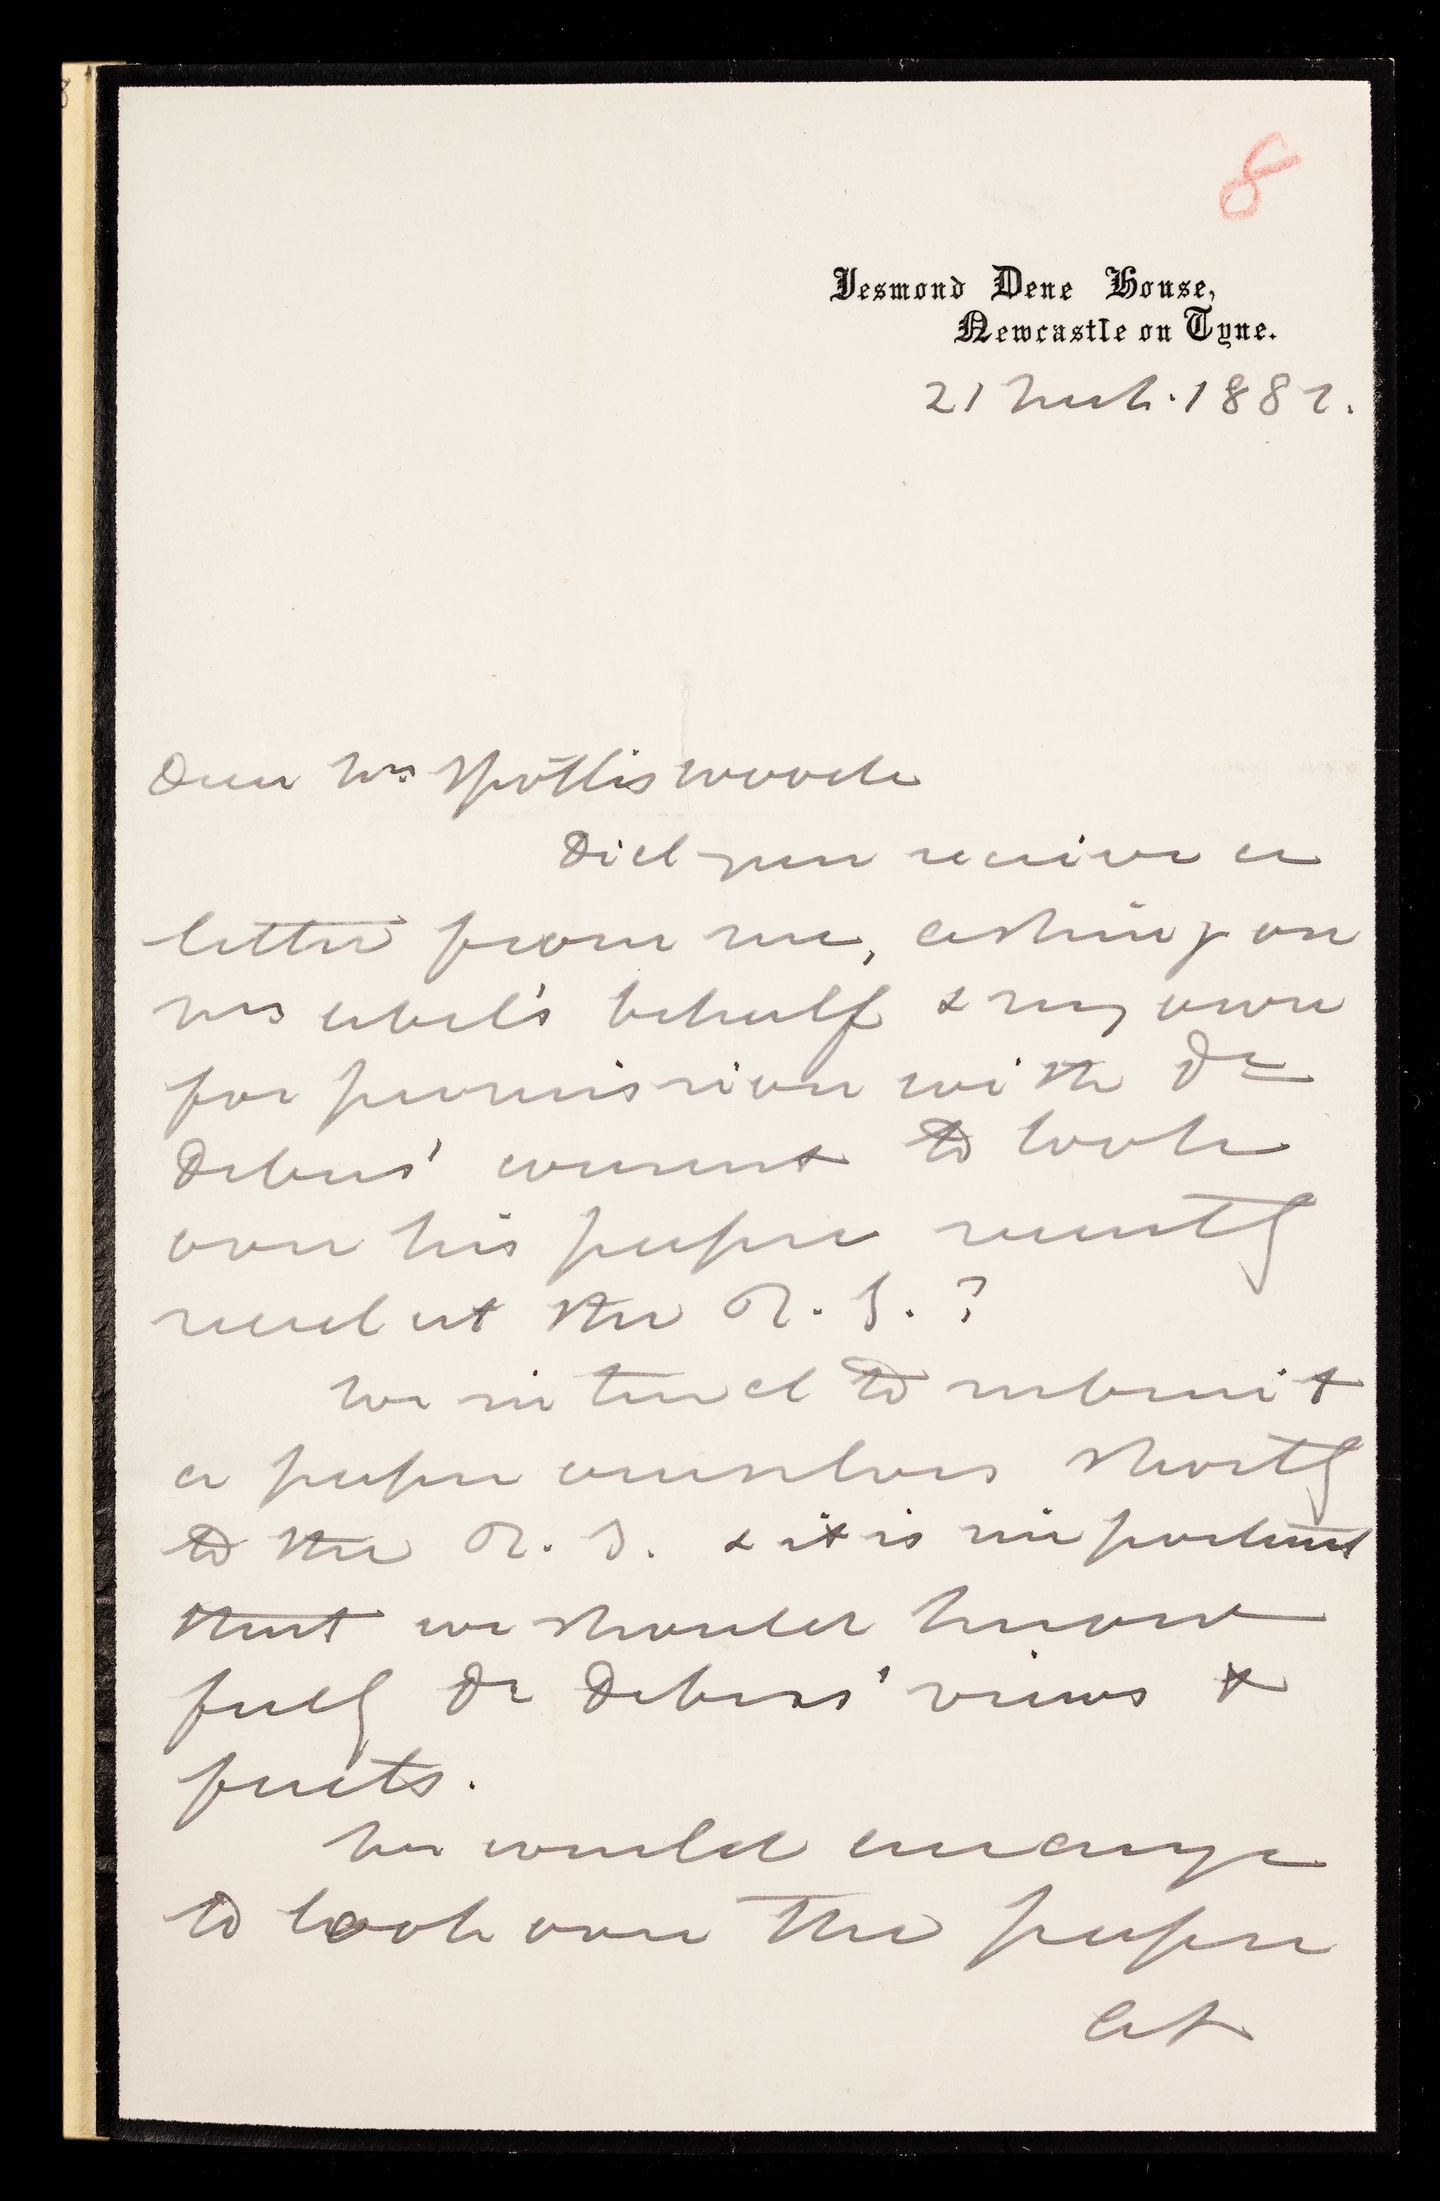 8
Jesmond Dene House,
Newcastle on Tyne.
21 March. 1882.
Dear Mr. Spottiswoode
Did you receive a
letter from me, asking on
Mr Abel's behalf & my own
for permission with Dr
Debus' consent to look
over his paper recently
read at the R. S. ?
We intend to submit
a paper ourselves shortly
to the R. S. & it is important
that we should know
fully Dr Debus' views &
facts.
We would arrange
to look over the paper
at